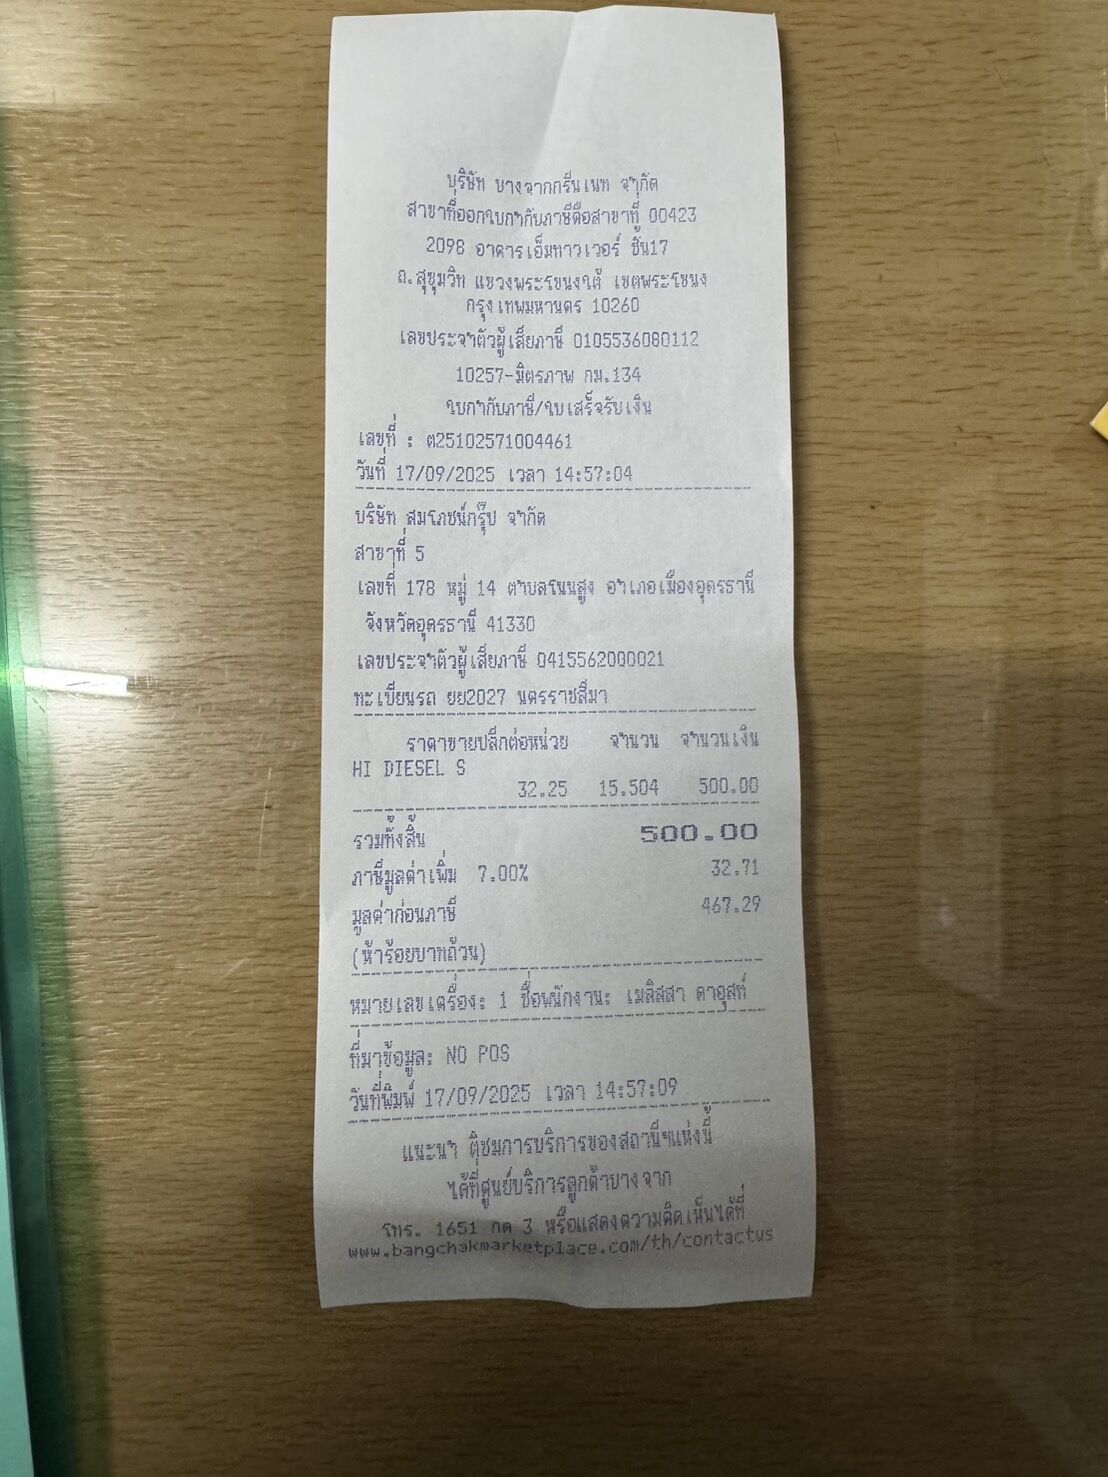 บริษัท บางจากกรีนเนท จำกัด
สาขาที่ออกใบกำกับภาษีคือสาขาที่ 00423
2098 อาคารเอ็มทาวเวอร์ ชั้น17
ถ.สุขุมวิท แขวงพระโขนงใต้ เขตพระโขนง
กรุงเทพมหานคร 10260
เลขประจำตัวผู้เสียภาษี 0105536080112
10257-มิตรภาพ กม.134
ใบกำกับภาษี/ใบเสร็จรับเงิน
เลขที่ : ต25102571004461
วันที่ 17/09/2025 เวลา 14:57:04
บริษัท สมโภชน์กรุ๊ป จำกัด
สาขาที่ 5
เลขที่ 178 หมู่ 14 ตำบลโนนสูง อำเภอเมืองอุดรธานี
จังหวัดอุดรธานี 41330
เลขประจำตัวผู้เสียภาษี 0415562000021
ทะเบียนรถ ยย2027 นครราชสีมา
ราคาขายปลีกต่อหน่วย จำนวน จำนวนเงิน
HI DIESEL S
32.25 15.504 500.00
รวมทั้งสิ้น 500.00
ภาษีมูลค่าเพิ่ม 7.00% 32.71
มูลค่าก่อนภาษี 467.29
(ห้าร้อยบาทถ้วน)
หมายเลขเครื่อง: 1 ชื่อพนักงาน: เมลิสสา ดาอุสท์
ที่มาข้อมูล: NO POS
วันที่พิมพ์ 17/09/2025 เวลา 14:57:09
แนะนำ ติชมการบริการของสถานีฯแห่งนี้
ได้ที่ศูนย์บริการลูกค้าบางจาก
โทร. 1651 กด 3 หรือแสดงความคิดเห็นได้ที่
www.bangchakmarketplace.com/th/contactus